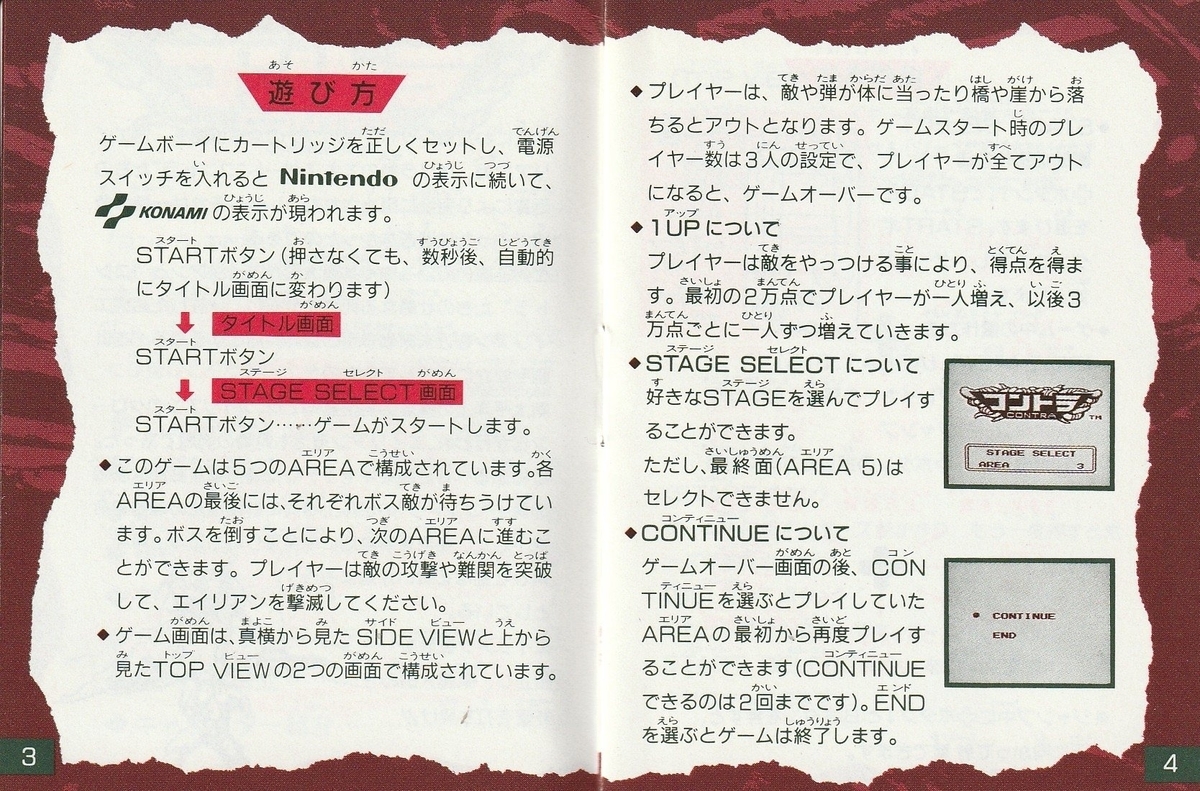 遊び方
ゲームボーイにカートリッジを正しくセットし、電源
スイッチを入れると Nintendo の表示に続いて、
KONAMI の表示が現われます。
STARTボタン(押さなくても、数秒後、自動的
にタイトル画面に変わります)
タイトル画面
STARTボタン
STAGE SELECT画面
STARTボタン……ゲームがスタートします。
◆このゲームは5つのAREAで構成されています。各
AREAの最後には、それぞれボス敵が待ちうけてい
ます。ボスを倒すことにより、次のAREAに進むこ
とができます。プレイヤーは敵の攻撃や難関を突破
して、エイリアンを撃滅してください。
◆ゲーム画面は、真横から見た SIDE VIEWと上から
見たTOP VIEWの2つの画面で構成されています。
3
◆プレイヤーは、敵や弾が体に当ったり橋や崖から落
ちるとアウトとなります。ゲームスタート時のプレ
イヤー数は3人の設定で、プレイヤーが全てアウト
になると、ゲームオーバーです。
◆1UPについて
プレイヤーは敵をやっつける事により、得点を得ま
す。最初の2万点でプレイヤーが一人増え、以後3
万点ごとに一人ずつ増えていきます。
◆STAGE SELECTについて
好きなSTAGEを選んでプレイす
ることができます。
ただし、最終面(AREA 5)は
セレクトできません。
コントラ
CONTRA TM
STAGE SELECT
AREA 3
◆CONTINUEについて
ゲームオーバー画面の後、CON
TINUEを選ぶとプレイしていた
AREAの最初から再度プレイす
ることができます(CONTINUE
できるのは2回までです)。END
を選ぶとゲームは終了します。
CONTINUE
END
4